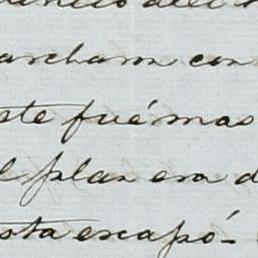 archaron con
ste fué mas
l plan era d
ota escapó-